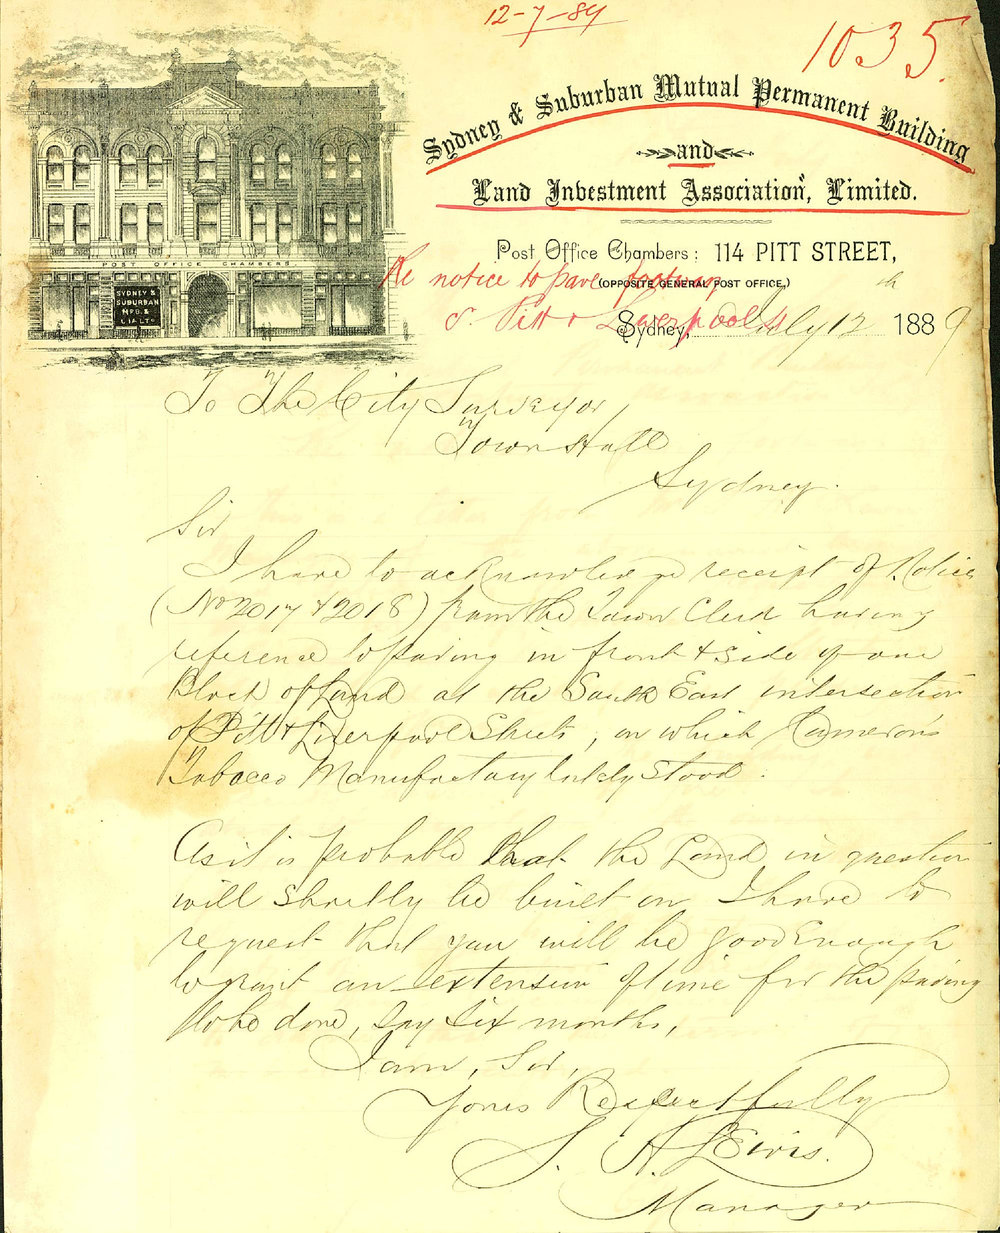 12-7-89
1035.
Sydney & Suburban Mutual Permanent Building
and
Land Investment Association, Limited.
Post Office Chambers: 114 PITT STREET,
(OPPOSITE GENERAL POST OFFICE,)
Re notice to pave footway
c. Pitt & Liverpool St
Sydney, July 12th 1889
POST OFFICE CHAMBERS
SYDNEY &
SUBURBAN
M.P.B. &
L.I.A. LTD
To The City Surveyor
Town Hall
Sydney.
Sir
I have to acknowledge receipt of Notices
(No 2017 & 2018) from the Town Clerk having
reference to paving in front & side of our
Block of Land at the South East intersection
of Pitt & Liverpool Streets, on which Cameron's
Tobacco Manufactory lately stood.
As it is probable that the Land in question
will shortly be built on I have to
request that you will be good enough
to grant an extension of time for the paving
to be done, say six months,
I am, Sir,
Yours Respectfully
S. H. Lewis.
Manager